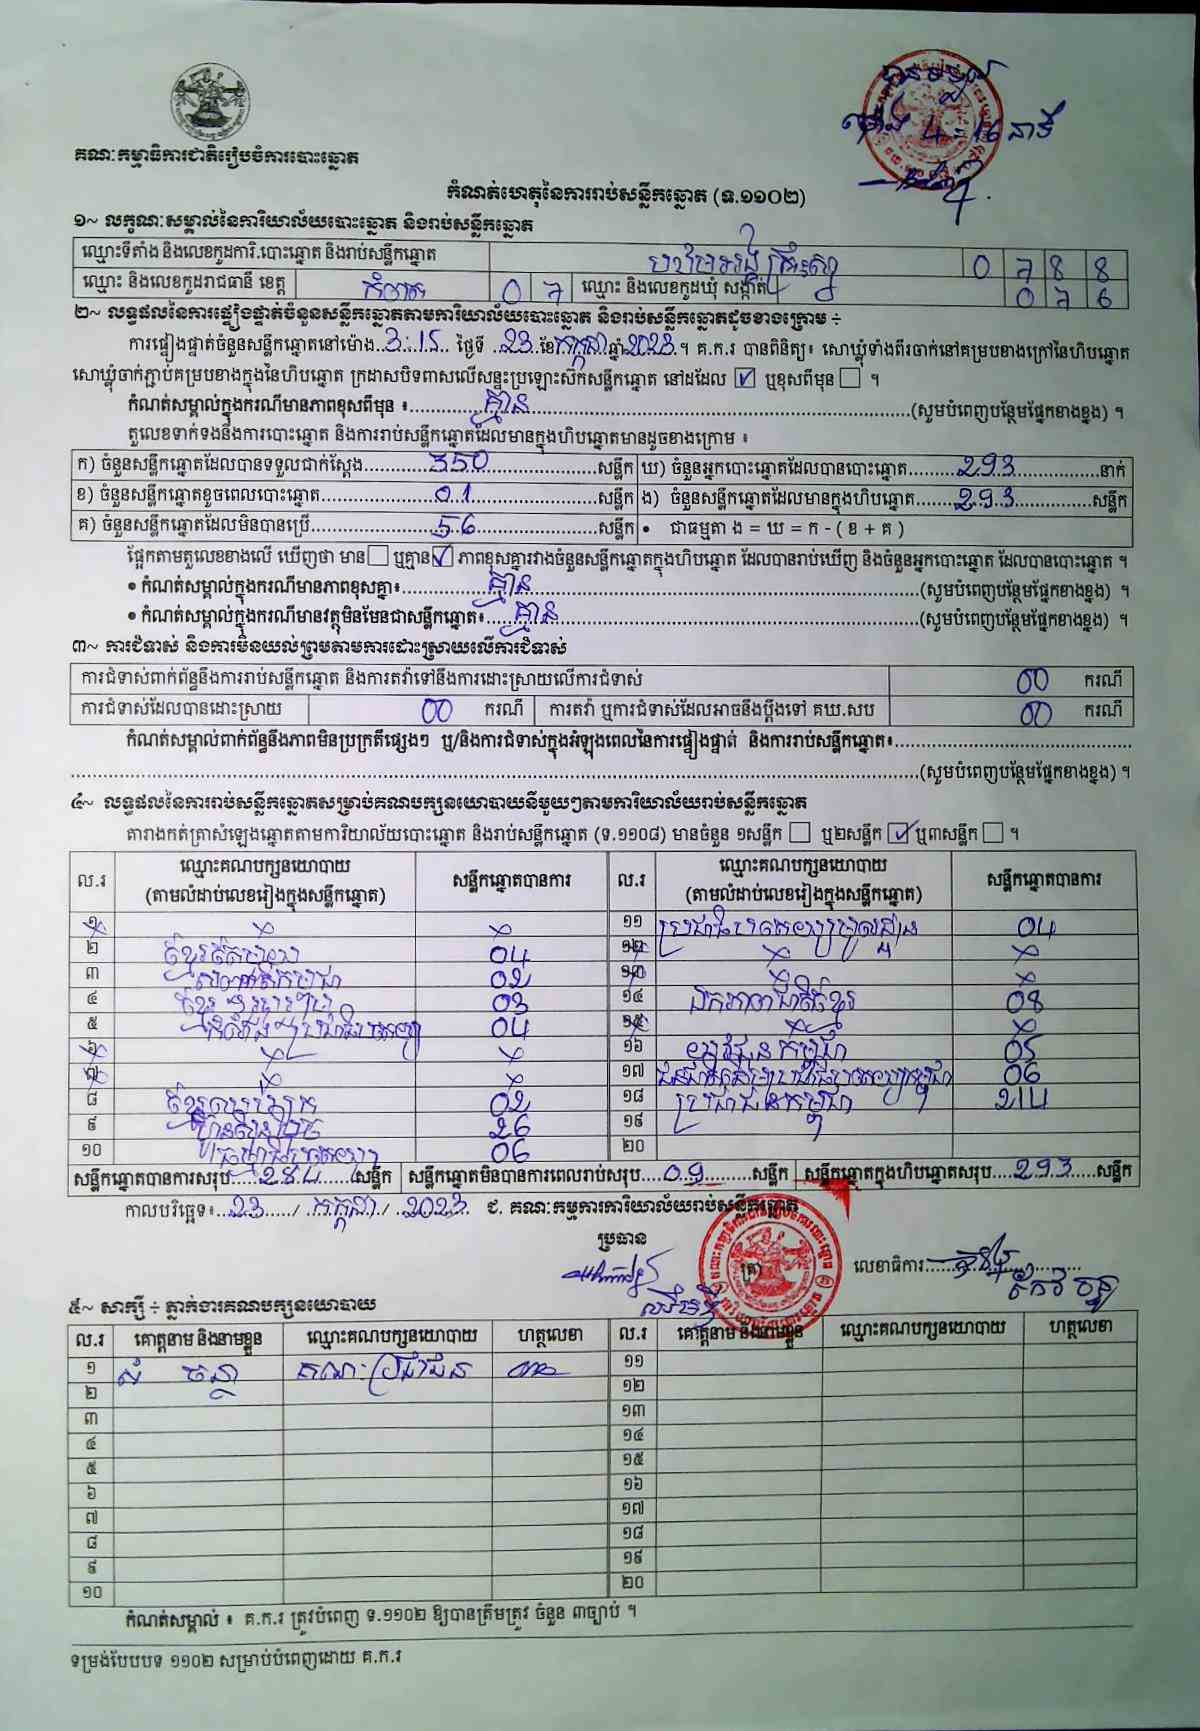 គណៈកម្មាធិការជាតិរៀបចំការបោះឆ្នោត
ម៉ោង 4 : 16 នាទី
កំណត់ហេតុនៃការរាប់សន្លឹកឆ្នោត (ទ.១១០២)
១~ លក្ខណៈសម្គាល់នៃការិយាល័យបោះឆ្នោត និងរាប់សន្លឹកឆ្នោត
ឈ្មោះទីតាំង និងលេខកូដការិ.បោះឆ្នោត និងរាប់សន្លឹកឆ្នោត 0 7 8 8
ឈ្មោះ និងលេខកូដរាជធានី ខេត្ត កំពត 0 7 ឈ្មោះ និងលេខកូដឃុំ សង្កាត់ 0 7 6
២~ លទ្ធផលនៃការផ្ទៀងផ្ទាត់ចំនួនសន្លឹកឆ្នោតតាមការិយាល័យបោះឆ្នោត និងរាប់សន្លឹកឆ្នោតដូចខាងក្រោម ÷
ការផ្ទៀងផ្ទាត់ចំនួនសន្លឹកឆ្នោតនៅម៉ោង 3:15 ថ្ងៃទី 23 ខែ កក្កដា ឆ្នាំ 2023 ។ គ.ក.រ បានពិនិត្យ៖ សោឃ្លុំទាំងពីរចាក់នៅគម្របខាងក្រៅនៃហិបឆ្នោត
សោឃ្លុំចាក់ភ្ជាប់គម្របខាងក្នុងនៃហិបឆ្នោត ក្រដាសបិទពាសលើសន្ទះប្រឡោះស៊កសន្លឹកឆ្នោត នៅដដែល ☑ ឬខុសពីមុន ☐ ។
កំណត់សម្គាល់ក្នុងករណីមានភាពខុសពីមុន ៖ គ្មាន (សូមបំពេញបន្ថែមផ្នែកខាងខ្នង) ។
តួលេខទាក់ទងនឹងការបោះឆ្នោត និងការរាប់សន្លឹកឆ្នោតដែលមានក្នុងហិបឆ្នោតមានដូចខាងក្រោម ៖
ក) ចំនួនសន្លឹកឆ្នោតដែលបានទទួលជាក់ស្តែង 350 សន្លឹក ឃ) ចំនួនអ្នកបោះឆ្នោតដែលបានបោះឆ្នោត 293 នាក់
ខ) ចំនួនសន្លឹកឆ្នោតខូចពេលបោះឆ្នោត 01 សន្លឹក ង) ចំនួនសន្លឹកឆ្នោតដែលមានក្នុងហិបឆ្នោត 293 សន្លឹក
គ) ចំនួនសន្លឹកឆ្នោតដែលមិនបានប្រើ 56 សន្លឹក • ជាធម្មតា ង = ឃ = ក - ( ខ + គ )
ផ្អែកតាមតួលេខខាងលើ ឃើញថា មាន ☐ ឬគ្មាន ☑ ភាពខុសគ្នារវាងចំនួនសន្លឹកឆ្នោតក្នុងហិបឆ្នោត ដែលបានរាប់ឃើញ និងចំនួនអ្នកបោះឆ្នោត ដែលបានបោះឆ្នោត ។
• កំណត់សម្គាល់ក្នុងករណីមានភាពខុសគ្នា៖ គ្មាន (សូមបំពេញបន្ថែមផ្នែកខាងខ្នង) ។
• កំណត់សម្គាល់ក្នុងករណីមានវត្ថុមិនមែនជាសន្លឹកឆ្នោត៖ គ្មាន (សូមបំពេញបន្ថែមផ្នែកខាងខ្នង) ។
៣~ ការជំទាស់ និងការមិនយល់ព្រមតាមការដោះស្រាយលើការជំទាស់
ការជំទាស់ពាក់ព័ន្ធនឹងការរាប់សន្លឹកឆ្នោត និងការតវ៉ាទៅនឹងការដោះស្រាយលើការជំទាស់ 00 ករណី
ការជំទាស់ដែលបានដោះស្រាយ 00 ករណី ការតវ៉ា ឬការជំទាស់ដែលអាចនឹងប្តឹងទៅ គឃ.សប 00 ករណី
កំណត់សម្គាល់ពាក់ព័ន្ធនឹងភាពមិនប្រក្រតីផ្សេងៗ ឬ/និងការជំទាស់ក្នុងអំឡុងពេលនៃការផ្ទៀងផ្ទាត់ និងការរាប់សន្លឹកឆ្នោត៖
(សូមបំពេញបន្ថែមផ្នែកខាងខ្នង) ។
៤~ លទ្ធផលនៃការរាប់សន្លឹកឆ្នោតសម្រាប់គណបក្សនយោបាយនីមួយៗតាមការិយាល័យរាប់សន្លឹកឆ្នោត
តារាងកត់ត្រាសំឡេងឆ្នោតតាមការិយាល័យបោះឆ្នោត និងរាប់សន្លឹកឆ្នោត (ទ.១១០៨) មានចំនួន ១សន្លឹក ☐ ឬ២សន្លឹក ☑ ឬ៣សន្លឹក ☐ ។
ល.រ ឈ្មោះគណបក្សនយោបាយ សន្លឹកឆ្នោតបានការ ល.រ ឈ្មោះគណបក្សនយោបាយ សន្លឹកឆ្នោតបានការ
(តាមលំដាប់លេខរៀងក្នុងសន្លឹកឆ្នោត) (តាមលំដាប់លេខរៀងក្នុងសន្លឹកឆ្នោត)
១ x x ១១ ប្រជាធិបតេយ្យមូលដ្ឋាន 04
២ 04 ១២ x x
៣ 02 ១៣ x x
៤ 03 ១៤ ឯកភាពជាតិខ្មែរ 08
៥ 04 ១៥ x x
៦ x x ១៦ យុវជនកម្ពុជា 05
៧ x x ១៧ 06
៨ 02 ១៨ ប្រជាជនកម្ពុជា 214
៩ ហ្វ៊ុនស៊ិនប៉ិច 26 ១៩
១០ 06 ២០
សន្លឹកឆ្នោតបានការសរុប 284 សន្លឹក សន្លឹកឆ្នោតមិនបានការពេលរាប់សរុប 09 សន្លឹក សន្លឹកឆ្នោតក្នុងហិបឆ្នោតសរុប 293 សន្លឹក
កាលបរិច្ឆេទ៖ 23 / កក្កដា / 2023 ជ. គណៈកម្មការការិយាល័យរាប់សន្លឹកឆ្នោត
ប្រធាន
(ត្រា)
លេខាធិការ
៥~ សាក្សី ÷ ភ្នាក់ងារគណបក្សនយោបាយ
ល.រ គោត្តនាម និងនាមខ្លួន ឈ្មោះគណបក្សនយោបាយ ហត្ថលេខា ល.រ គោត្តនាម និងនាមខ្លួន ឈ្មោះគណបក្សនយោបាយ ហត្ថលេខា
១ សំ ចន្ថា គណៈប្រជាជន ១១
២ ១២
៣ ១៣
៤ ១៤
៥ ១៥
៦ ១៦
៧ ១៧
៨ ១៨
៩ ១៩
១០ ២០
កំណត់សម្គាល់ ៖ គ.ក.រ ត្រូវបំពេញ ទ.១១០២ ឱ្យបានត្រឹមត្រូវ ចំនួន ៣ច្បាប់ ។
ទម្រង់បែបបទ ១១០២ សម្រាប់បំពេញដោយ គ.ក.រ